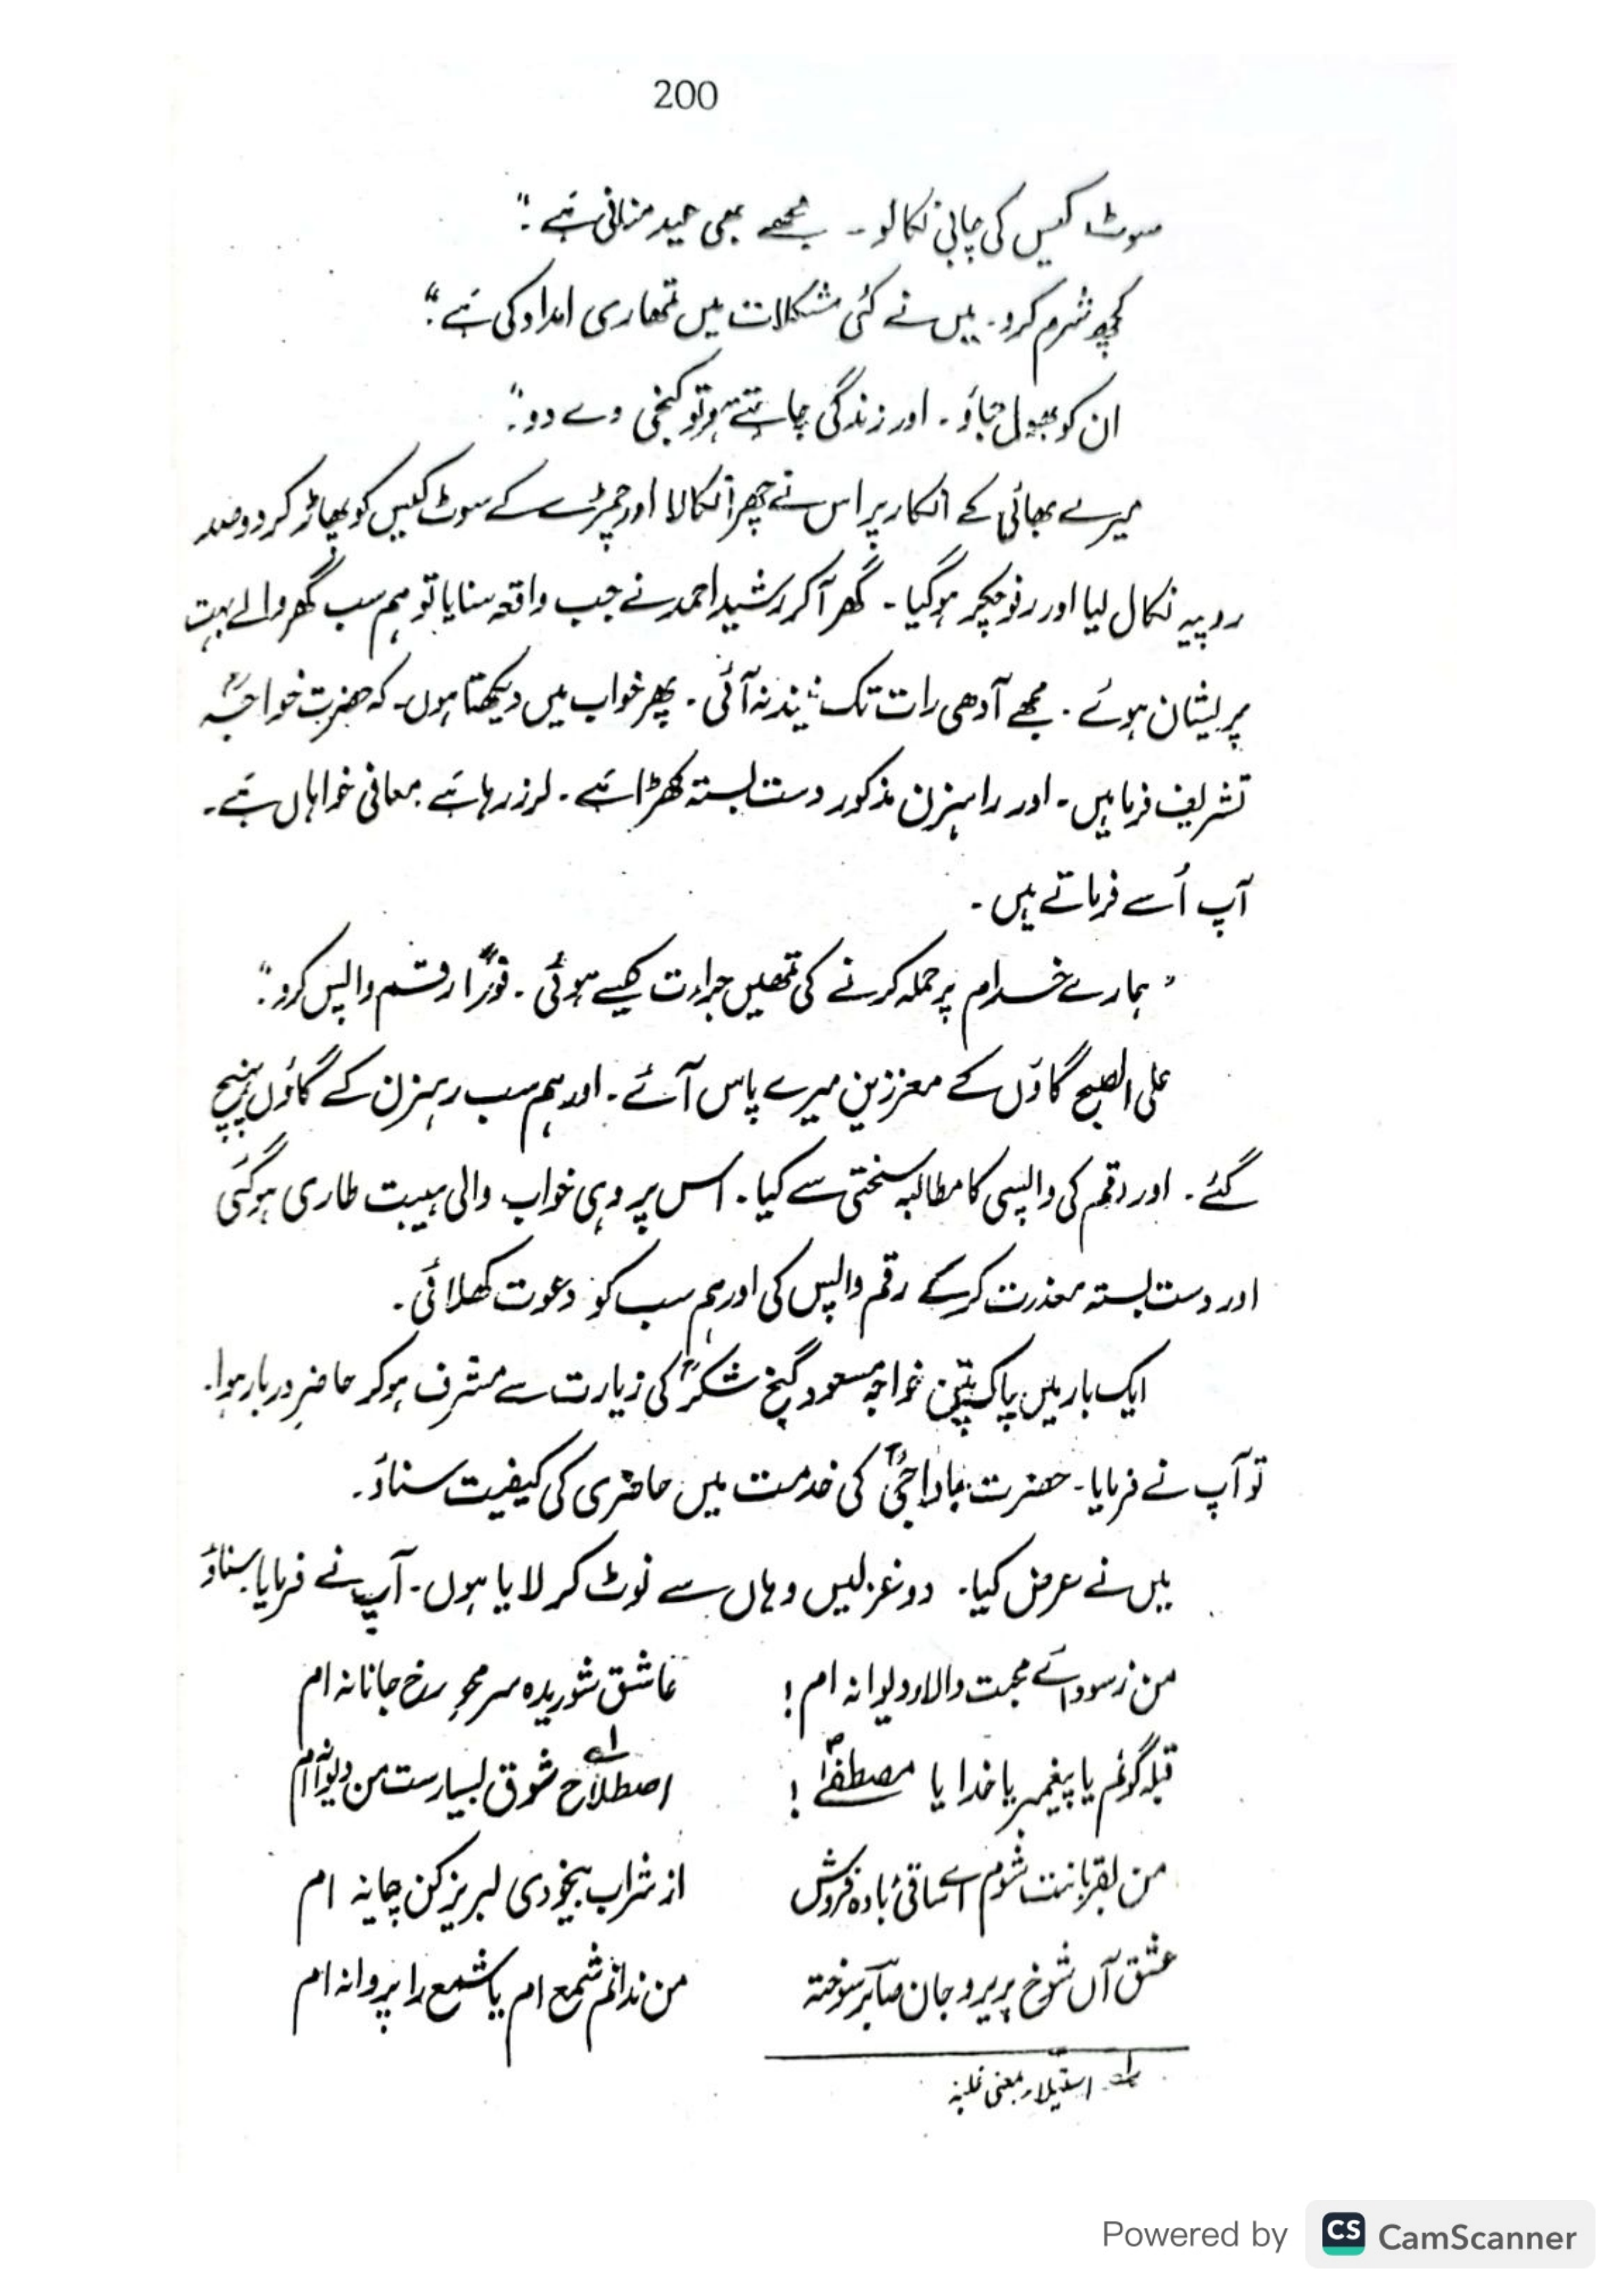 200
سوٹ کیس کی چابی نکالو ۔ مجھے بھی عید منانی ہَے :"
کچھ شرم کرو ۔ میں نے کئی مشکلات میں تمھاری امداد کی ہَے :"
ان کو بھول جاؤ ۔ اور زندگی چاہتے ہو تو کنجی دے دو :"
میرے بھائی کے انکار پر اس نے چھرا نکالا اور چمڑے کے سوٹ کیس کو پھاڑ کر دو صد
روپیہ نکال لیا اور رفوچکر ہوگیا ۔ گھر آکر رشید احمد نے جب واقعہ سنایا تو ہم سب گھر والے بہت
پریشان ہوئے ۔ مجھے آدھی رات تک نیند نہ آئی ۔ پھر خواب میں دیکھتا ہوں ۔ کہ حضرت خواجہؒ
تشریف فرما ہیں ۔ اور راہزن مذکور دست بستہ کھڑا ہَے ۔ لرز رہا ہَے معافی خواہاں ہَے ۔
آپ اُسے فرماتے ہیں ۔
" ہمارے خدام پر حملہ کرنے کی تمھیں جراءت کیسے ہوئی ۔ فوراً رقم واپس کرو :"
علی الصبح گاؤں کے معززین میرے پاس آئے ۔ اور ہم سب رہزن کے گاؤں پہنچ
گئے ۔ اور رقم کی واپسی کا مطالبہ سختی سے کیا ۔ اس پر وہی خواب والی ہیبت طاری ہوگئی
اور دست بستہ معذرت کرکے رقم واپس کی اور ہم سب کو دعوت کھلائی ۔
ایک بار میں پاک پتن خواجہ مسعود گنج شکرؒ کی زیارت سے مشرف ہوکر حاضرِ دربار ہوا ۔
تو آپ نے فرمایا ۔ حضرت باواجیؒ کی خدمت میں حاضری کی کیفیت سناؤ ۔
میں نے عرض کیا ۔ دو غزلیں وہاں سے نوٹ کر لایا ہوں ۔ آپ نے فرمایا سناؤ
من ز سودائے محبت والا و دیوانہ ام ! عاشق شوریدہ سر محوِ رخ جانانہ ام
قبلہ گوئم یا پیغمبر یا خدا یا مصطفےٰؐ ! اصطلاح شوق بسیارست من دیوانہ ام
من بقربانت شوم اے ساقئ بادہ فروش از شراب بیخودی لبریز کن پیمانہ ام
عشق آں شوخ پریرو جان صابر سوختہ من ندانم شمع ام یا شمع را پروانہ ام
۱ے ۔ استیلاء بمعنی غلبہ
Powered by CS CamScanner